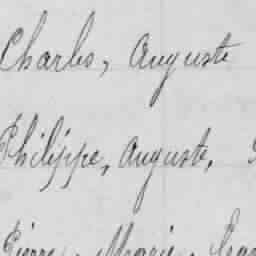 Charles, Auguste
Philippe, Auguste,
Pierre, Marie,